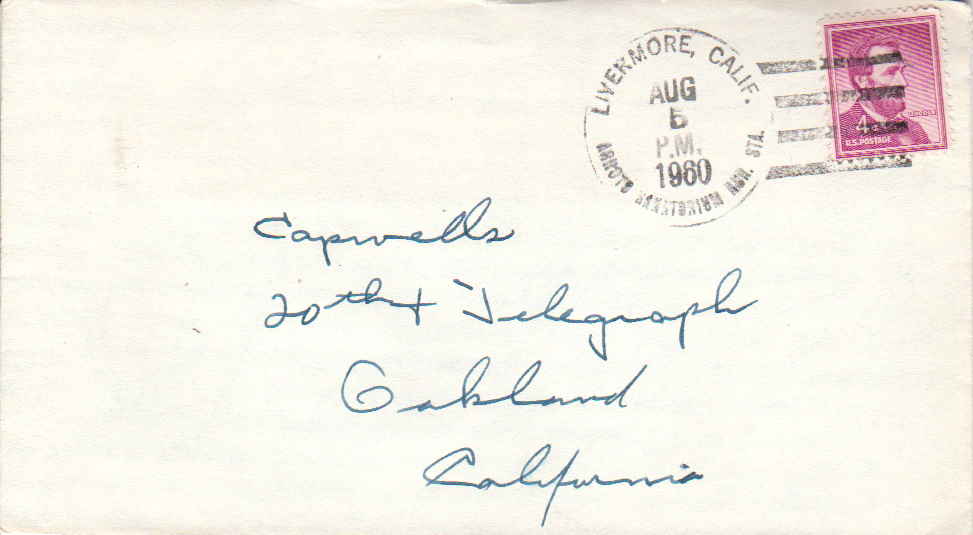 LIVERMORE, CALIF.
AUG
5
P.M.
1960
ARROYO SANATORIUM RUR. STA.
LINCOLN
4¢
U.S. POSTAGE
Capwells
20th + Telegraph
Oakland
California